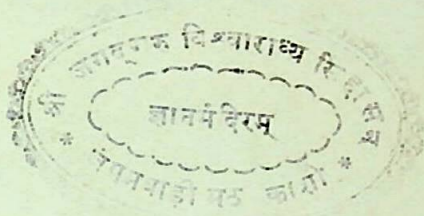 श्री जगद्गुरू विश्वाराध्य सिंहासन
ज्ञानमंदिरम्
* जंगमवाड़ी मठ काशी *